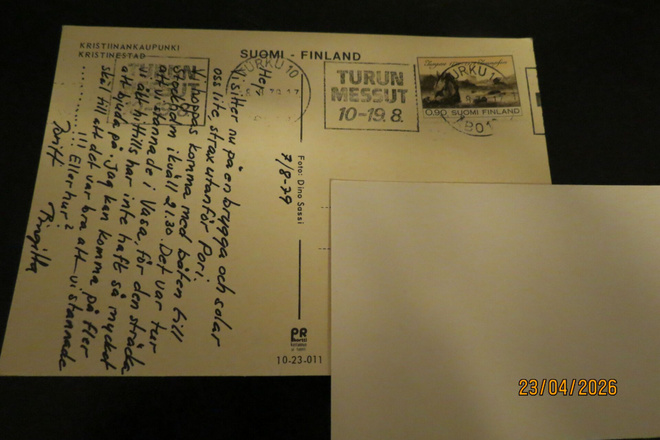 KRISTIINANKAUPUNKI
KRISTINESTAD
SUOMI - FINLAND
TURUN
MESSUT
TURKU 10
TURUN
MESSUT
10-19.8.
TURKU 10
0,90 SUOMI FINLAND
Hej!
Vi sitter nu på en brygga och solar
oss lite, strax utanför Pori.
Vi hoppas komma med båten till
Stockholm ikväll 21.30. Det var tur
att vi stannade i Vasa, för den sträcka
vi åkt hittills har inte haft så mycket
att bjuda på. Jag kan komma på fler
skäl till att det var bra att vi stannade
!!! Eller hur?
Britt Birgitta
7/8-79
Foto: Dino Sassi
PR
10-23-011
23/04/2026